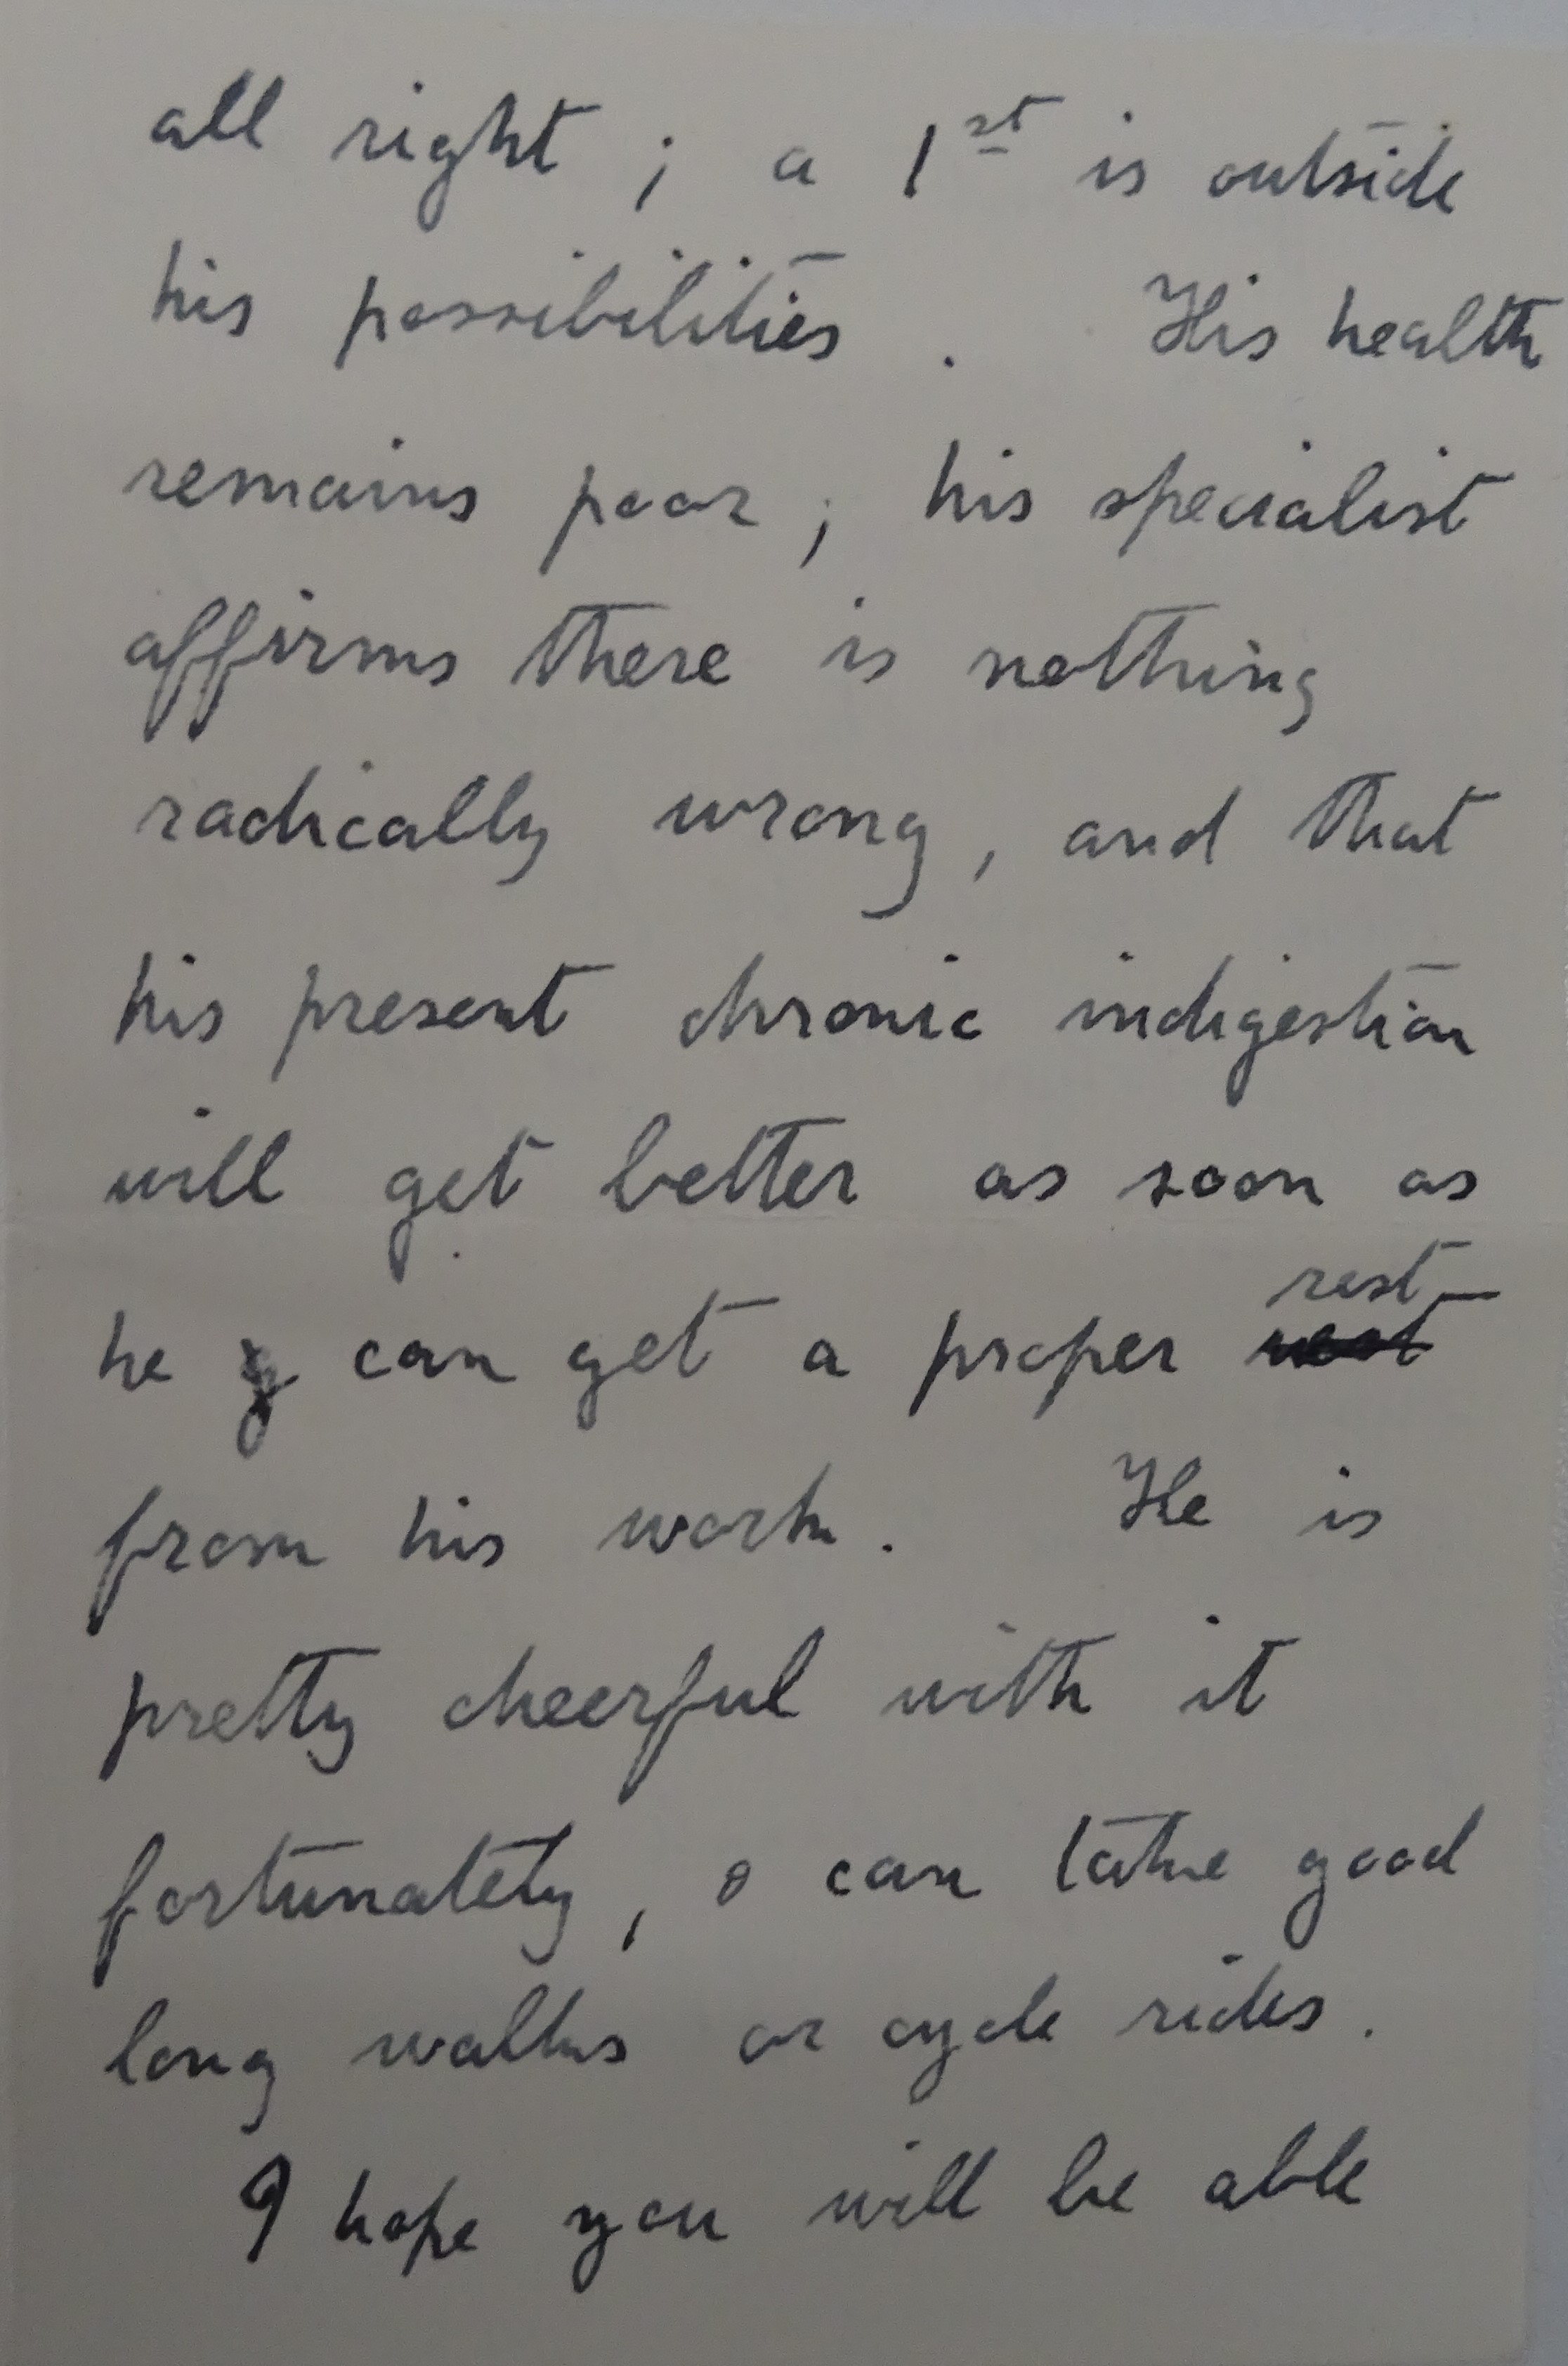 all right ; a 1st is outside
his possibilities . His health
remains poor ; his specialist
affirms there is nothing
radically wrong , and that
his present chronic indigestion
will get better as soon as
rest
he can get a proper
from his work . He is
pretty cheerful with it
fortunately , & can take good
long walks or cycle rides .
I hope you will be able